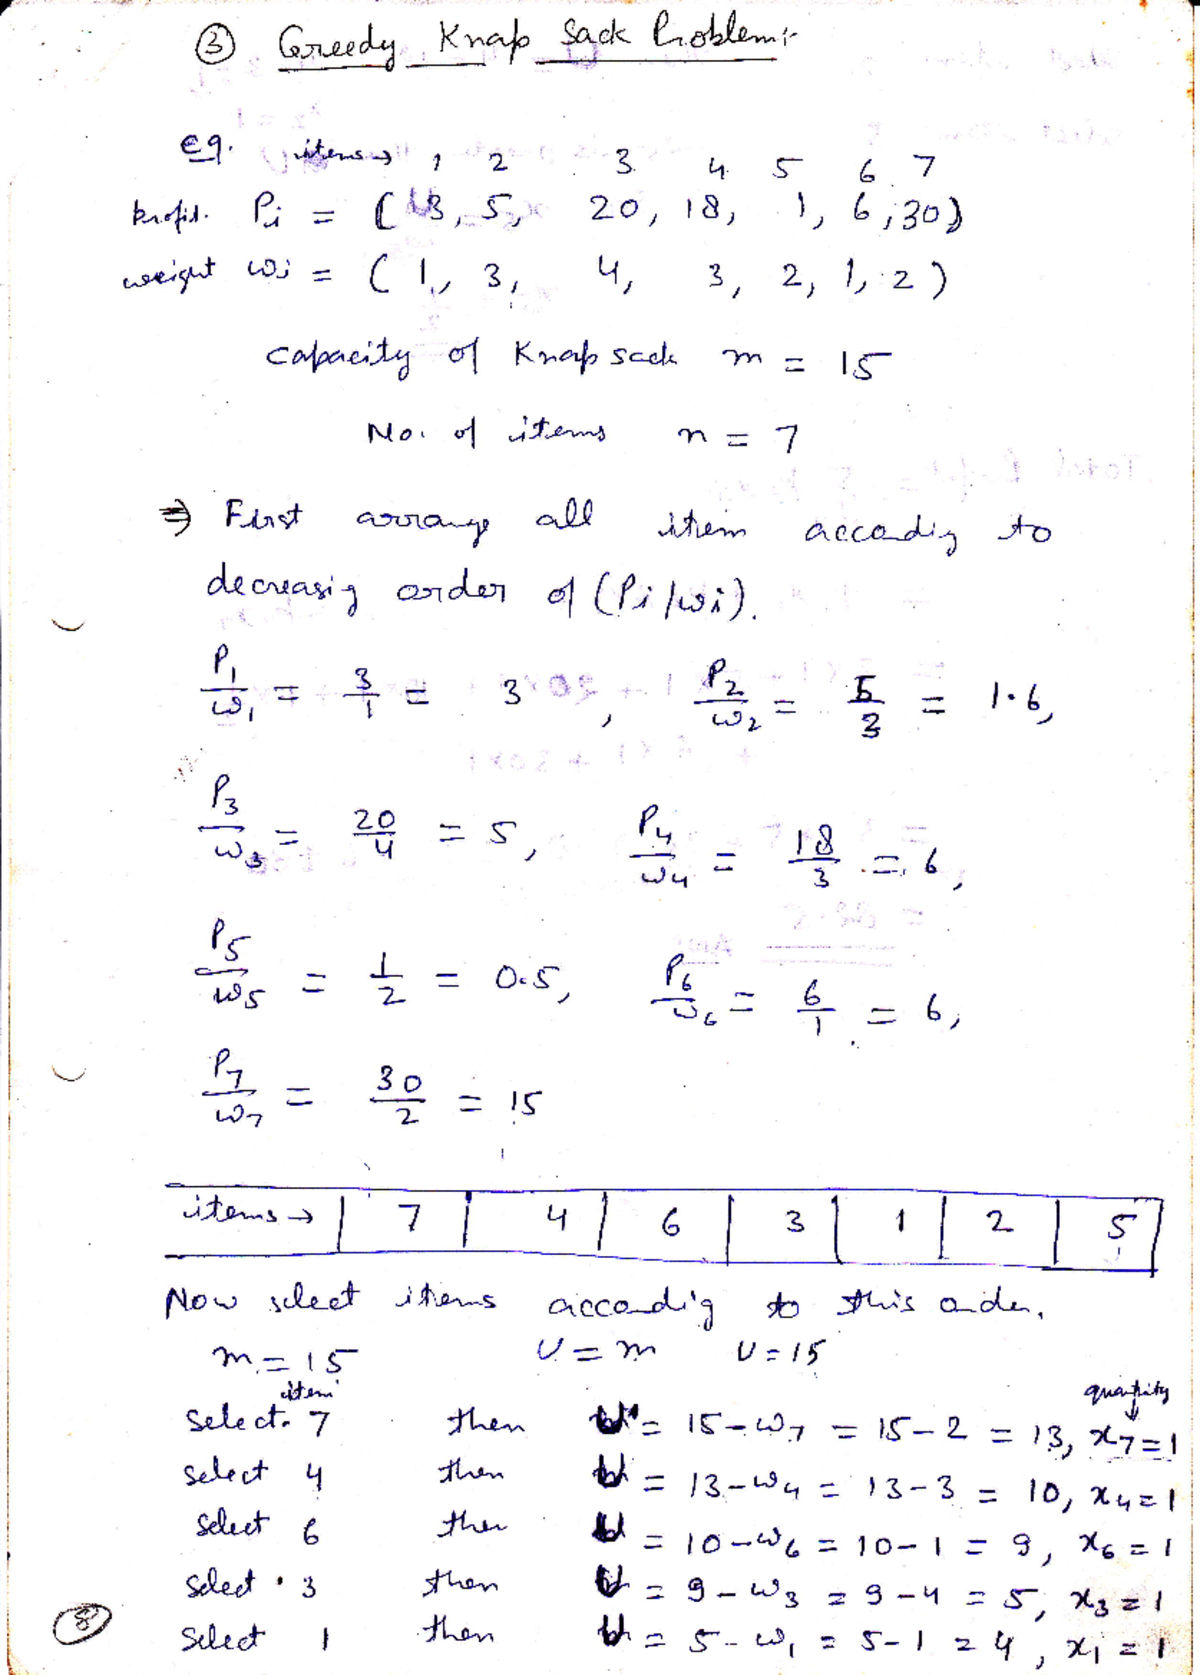 ③ Greedy Knap Sack Problem:-
eg. items → 1 2 3 4 5 6 7
Profit. Pi = ( 3, 5, 20, 18, 1, 6, 30)
weight wi = ( 1, 3, 4, 3, 2, 1, 2 )
capacity of Knap sack m = 15
No. of items n = 7
⇒ First arrange all item accordig to
decreasig order of (Pi/wi).
P1/w1 = 3/1 = 3, P2/w2 = 5/3 = 1.6,
P3/w3 = 20/4 = 5, P4/w4 = 18/3 = 6,
P5/w5 = 1/2 = 0.5, P6/w6 = 6/1 = 6,
P7/w7 = 30/2 = 15
items → | 7 | 4 | 6 | 3 | 1 | 2 | 5
Now select items accordig to this order.
m = 15 U = m U = 15
item quantity
select 7 then U = 15 - w7 = 15 - 2 = 13, x7 = 1
select 4 then U = 13 - w4 = 13 - 3 = 10, x4 = 1
select 6 then U = 10 - w6 = 10 - 1 = 9, x6 = 1
select 3 then U = 9 - w3 = 9 - 4 = 5, x3 = 1
select 1 then U = 5 - w1 = 5 - 1 = 4, x1 = 1
8